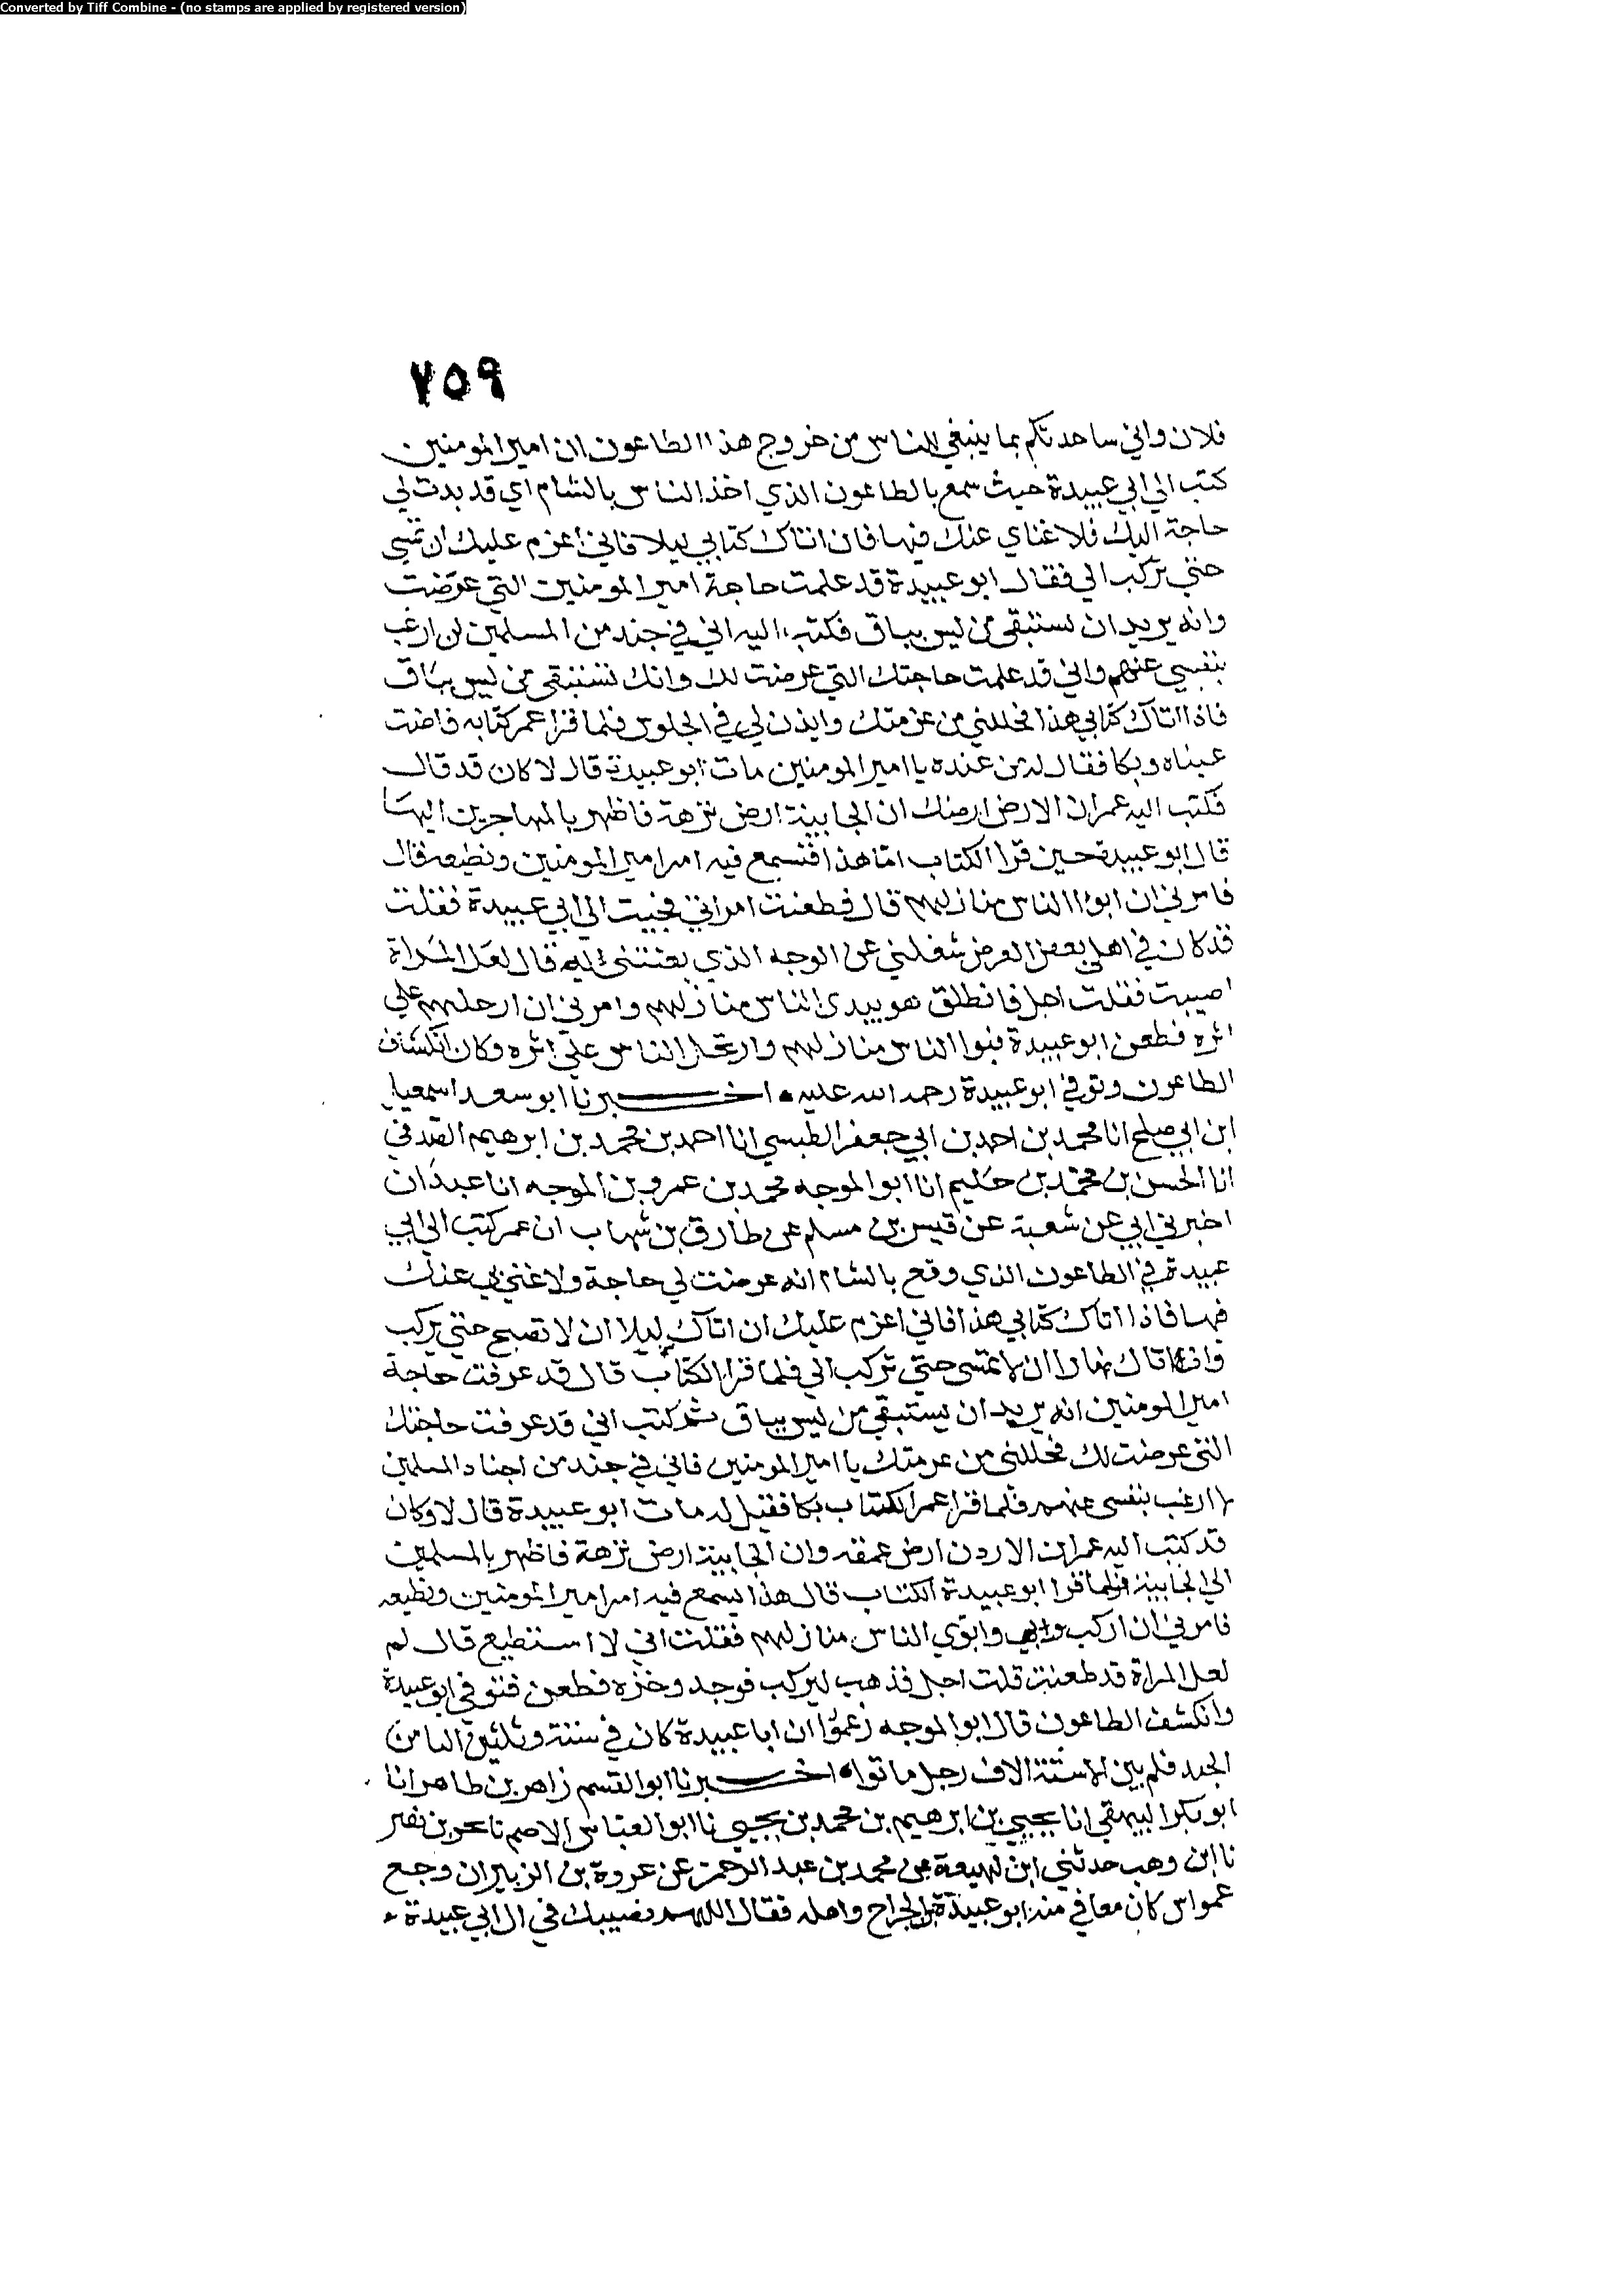 Converted by Tiff Combine - (no stamps are applied by registered version)
٧٥٩
فلان واني ساحدثكم بما ينبغي للناس من خروج هذا الطاعون ان امير المومنين
كتب الي ابي عبيدة حيث سمع بالطاعون الذي اخذ الناس بالشام اي قد بدت لي
حاجة اليك فلا غناي عنك فيها فان اتاك كتابي ليلا فاني اعزم عليك ان تمسي
حتي تركب الي فقال ابو عبيدة قد علمت حاجة امير المومنين التي عرضت
وانه يريد ان يستبقي من ليس بباق فكتب اليه اني في جند من المسلمين لن ارغب
بنفسي عنهم واني قد علمت حاجتك التي عرضت لك وانك تستبقي من ليس بباق
فاذا اتاك كتابي هذا فحللني من عزمتك وايذن لي في الجلوس فلما قرا عمر كتابه فاضت
عيناه وبكا فقال له من عنده يا امير المومنين مات ابو عبيدة قال لا كان قد قال
فكتب اليه عمر ان الارض ارضك ان الجابية ارض نزهة فاظهر بالمهاجرين اليها
قال ابو عبيدة حين قرا الكتاب اما هذا فنسمع فيه امر امير المومنين ونطيعه قال
فامرني ان ابوا الناس منازلهم قال فطعنت امراتي فجيت الي ابي عبيدة فقلت
قد كان في اهلي بعض العرض شغلني عن الوجه الذي بعثتني اليه قال لعل المراة
اصيبت فقلت اجل فانطلق هو يبدي الناس منازلهم وامرني ان ارحلهم علي
اثره فطعن ابو عبيدة فبوا الناس منازلهم وارتحل الناس علي اثره وكان انكشاف
الطاعون وتوفي ابو عبيدة رحمه الله عليه • اخــــبرنا ابو سعد اسمعيل
ابن ابي صلح انا محمد بن احمد بن ابي جعفر الطبسي انا احمد بن محمد بن ابرهيم الصدفي
انا الحسن بن محمد بن حكيم انا ابو الموجه محمد بن عمرو بن الموجه انا عبدان
اخبرني ابي عن شعبة عن قيس بن مسلم عن طارق بن شهاب ان عمر كتب الي ابي
عبيدة في الطاعون الذي وقع بالشام انه عرضت لي حاجة ولا غني بي عنك
فيها فاذا اتاك كتابي هذا فاني اعزم عليك ان اتاك ليلا ان لا تصبح حتي تركب
وان اتاك نهارا ان لا تمسي حتي تركب الي فلما قرا الكتاب قال قد عرفت حاجة
امير المومنين انه يريد ان يستبقي من ليس بباق ثم كتب اني قد عرفت حاجتك
التي عرضت لك فحللني من عزمتك يا امير المومنين فاني في جند من اجناد المسلمين
لا ارغب بنفسي عنهم فلما قرا عمر الكتاب بكا فقيل له مات ابو عبيدة قال لا وكان
قد كتب اليه عمر ان الاردن ارض عمقه وان الجابية ارض نزهة فاظهر بالمسلمين
الي الجابية فلما قرا ابو عبيدة الكتاب قال هذا يسمع فيه امر امير المومنين ونطيعه
فامرني ان اركب وابوي الناس منازلهم فقلت اني لا استطيع قال لم
لعل المراة قد طعنت قلت اجل فذهب ليركب فوجد وخزه فطعن فتوفي ابو عبيدة
وانكشف الطاعون قال ابو الموجه زعموا ان ابا عبيدة كان في ستة وثلثين الفا من
الجند فلم يبق الا ستة الاف رجل ماتوا • اخــــبرنا ابو القسم زاهر بن طاهر انا
ابو بكر البيهقي انا يحيي بن ابرهيم بن محمد بن يحيي نا ابو العباس الاصم نا بحر بن نصر
نا ابن وهب حدثني ابن لهيعة عن محمد بن عبد الرحمن عن عروة بن الزبير ان وجع
عمواس كان معافي منه ابو عبيدة بن الجراح واهله فقال اللهم نصيبك في ال ابي عبيدة •